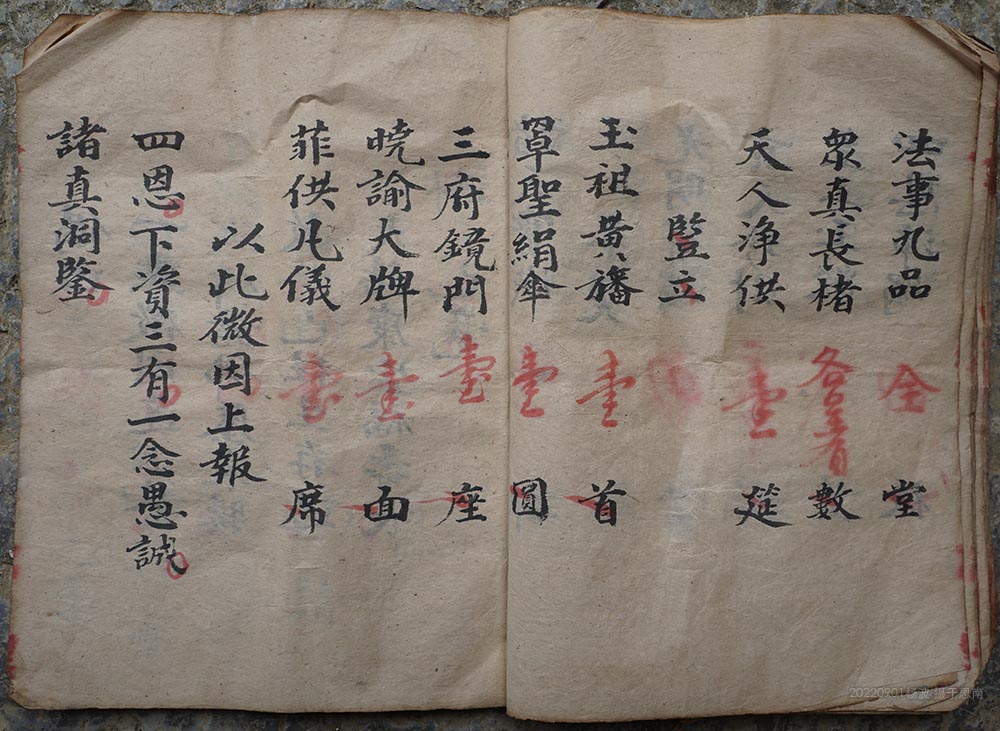 法事九品 全 堂
衆真長楮 各全者 數
天人净供 一壹 筵
豎立
玉祖黄旛 壹 首
罩聖絹傘 壹 圓
三府鏡門 壹 座
曉諭大牌 壹 面
菲供凡儀 壹 席
以此微因上報
四恩下資三有一念愚誠
諸真洞鑒
20220901杨波 摄于思南